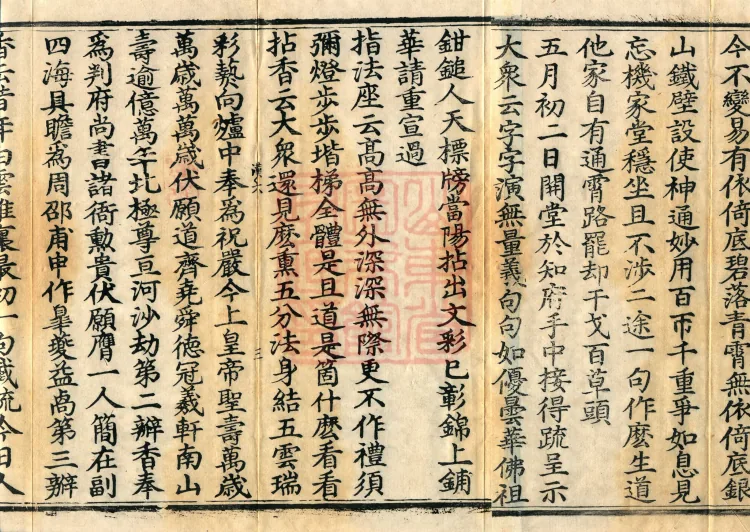 今不變易有依倚底碧落青霄無依倚底銀
山鐵壁設使神通妙用百帀千重爭如息見
忘機家堂穩坐且不涉二途一句作麼生道
他家自有通霄路罷却干戈百草頭
五月初二日開堂於知府手中接得疏呈示
大衆云字字演無量義句句如優曇華佛祖
鉗鎚人天標牓當陽拈出文彩已彰錦上鋪
華請重宣過
指法座云高高無外深深無際更不作禮須
彌燈步步堦梯全體是且道是箇什麼看看
拈香云大衆還見麼熏五分法身結五雲瑞
彩爇向爐中奉爲祝嚴今上皇帝聖壽萬歲
萬歲萬萬歲伏願道齊堯舜德冠羲軒南山
壽逾億萬年北極尊亘河沙劫第二瓣香奉
爲判府尚書諸衙勲貴伏願膺一人簡在副
四海具瞻爲周邵甫申作臯夔益卨第三瓣
香云昔年白雲堆裏最初一句截流今日人
三